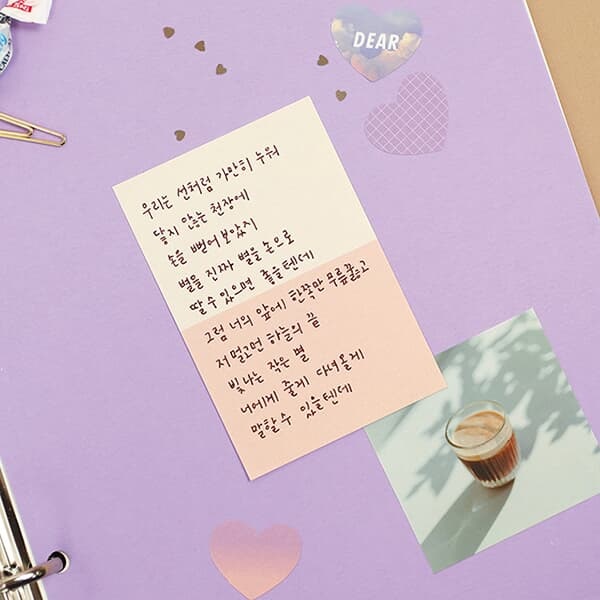 DEAR
우리는 선처럼 가만히 누워
닿지 않는 천장에
손을 뻗어보았지
별을 진짜 별을 손으로
딸 수 있으면 좋을텐데
그럼 너의 앞에 한쪽만 무릎꿇고
저 멀고먼 하늘의 끝
빛나는 작은 별
너에게 줄게 다녀올게
말할 수 있을텐데